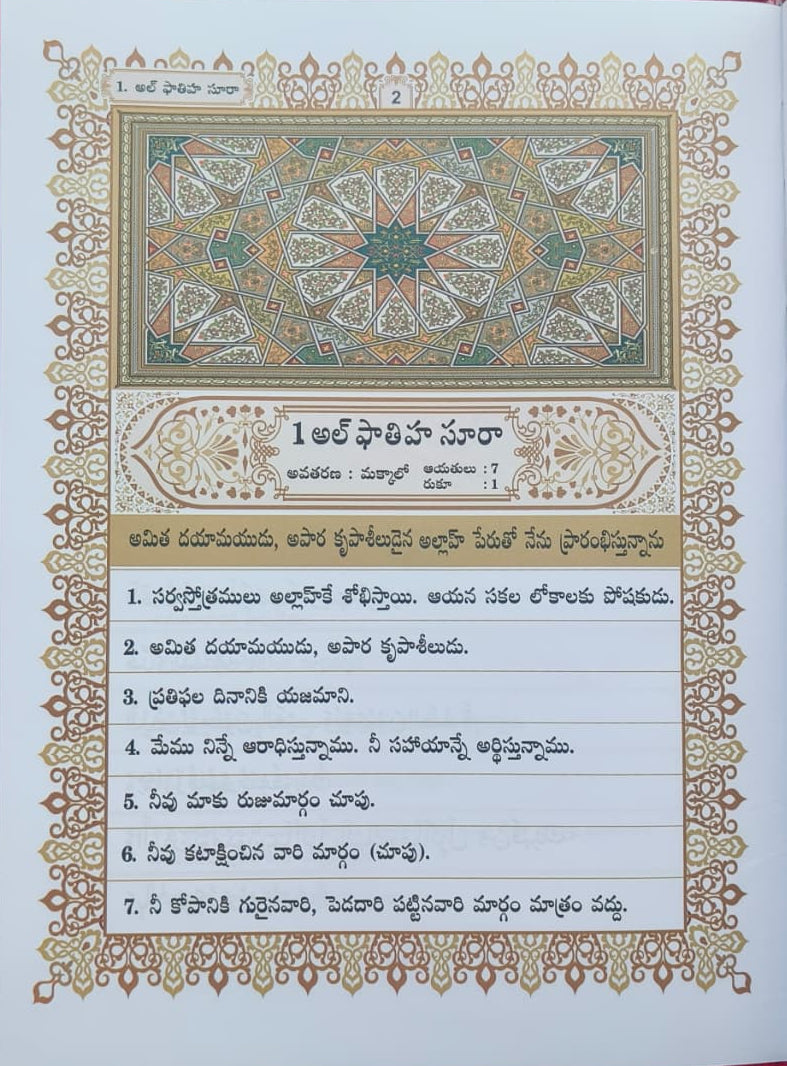 1. అల్ ఫాతిహ సూరా
2
1 అల్ ఫాతిహ సూరా
అవతరణ : మక్కాలో ఆయతులు : 7
రుకూ : 1
అమిత దయామయుడు, అపార కృపాశీలుడైన అల్లాహ్ పేరుతో నేను ప్రారంభిస్తున్నాను
1. సర్వస్తోత్రములు అల్లాహ్‌కే శోభిస్తాయి. ఆయన సకల లోకాలకు పోషకుడు.
2. అమిత దయామయుడు, అపార కృపాశీలుడు.
3. ప్రతిఫల దినానికి యజమాని.
4. మేము నిన్నే ఆరాధిస్తున్నాము. నీ సహాయాన్నే అర్థిస్తున్నాము.
5. నీవు మాకు రుజుమార్గం చూపు.
6. నీవు కటాక్షించిన వారి మార్గం (చూపు).
7. నీ కోపానికి గురైనవారి, పెడదారి పట్టినవారి మార్గం మాత్రం వద్దు.